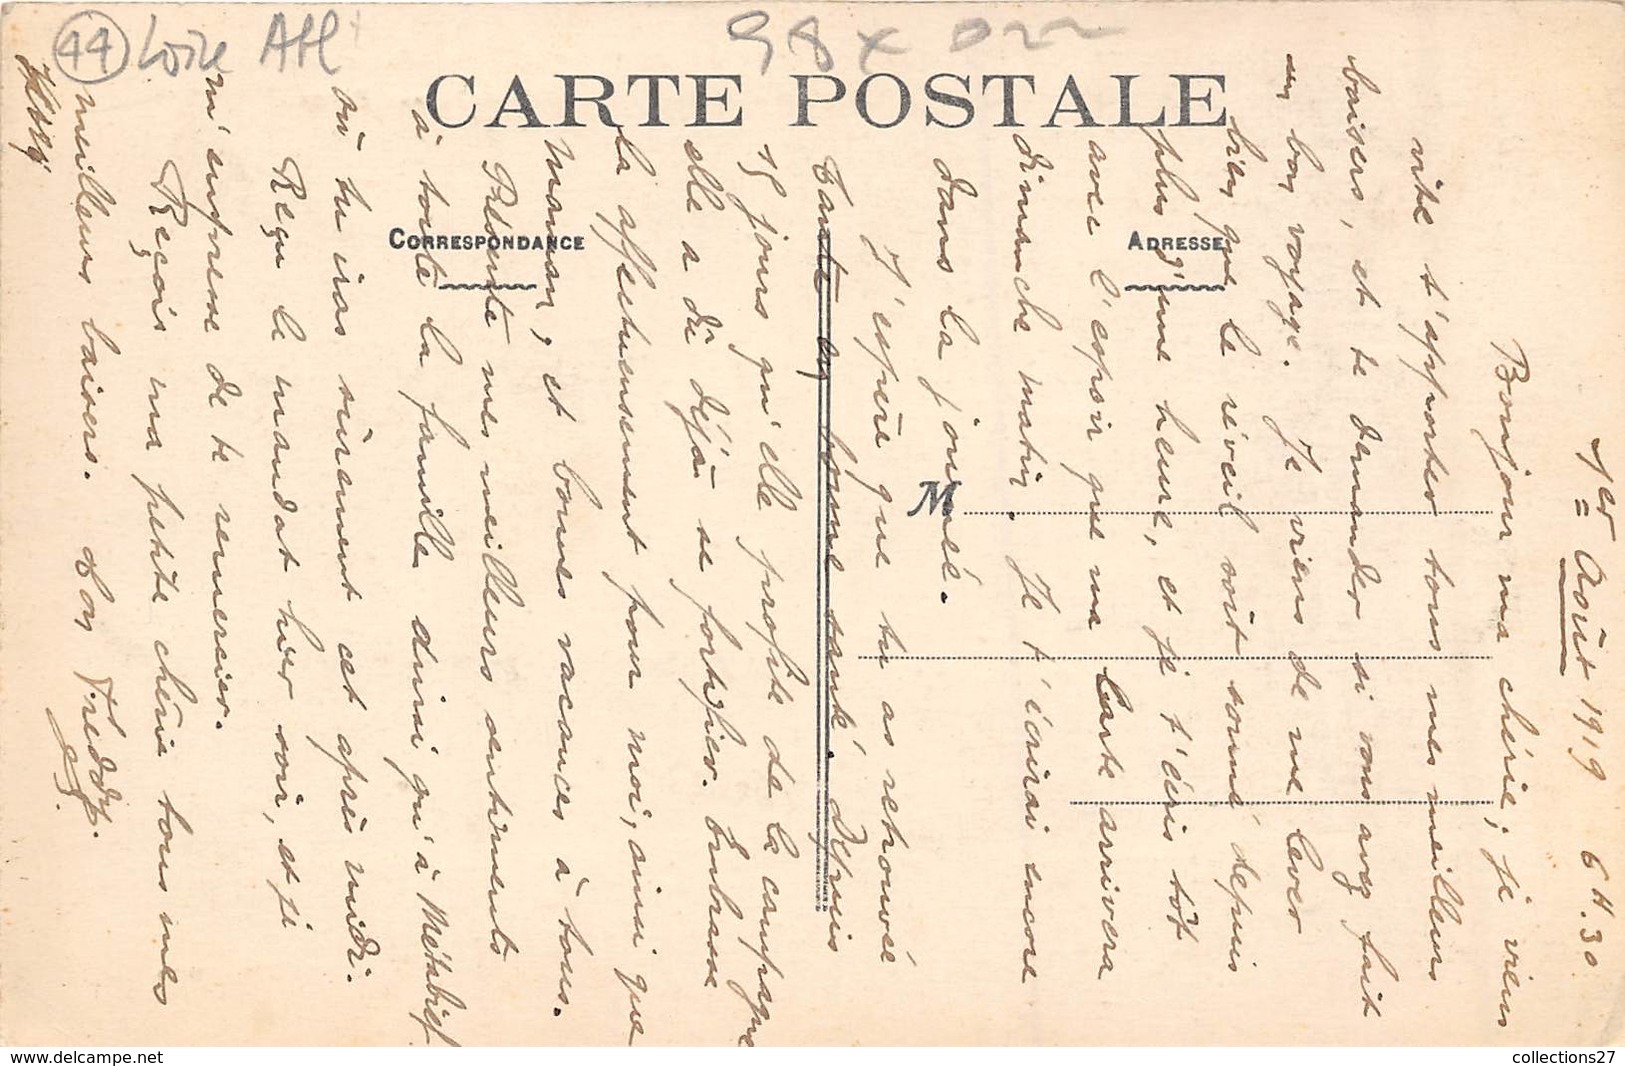 44 Loire Atl
CARTE POSTALE
CORRESPONDANCE
ADRESSE
M
1er Août 1919 6 H. 30
Bonjour ma chérie; je viens
vite t'apporter tous mes meilleurs
baisers, et te demander si vous avez fait
un bon voyage. Je viens de me lever
bien que le réveil soit sonné depuis
plus d'une heure, et je t'écris tôt
avec l'espoir que ma carte arrivera
dimanche matin. Je t'écrirai encore
dans la journée.
J'espère que tu as retrouvé
Tante en bonne santé. Depuis
15 jours qu'elle profite de la campagne
elle a dû déjà se fortifier. Embrasse
la affectueusement pour moi, ainsi que
Maman, et bonnes vacances à tous.
Présente mes meilleurs sentiments
à toute la famille ainsi qu'à Métabief
où tu iras sûrement cet après midi.
Reçu le mandat hier soir, et je
m'empresse de te remercier.
Reçois ma petite chérie tous mes
meilleurs baisers. Ton Freddy.
www.delcampe.net
collections27